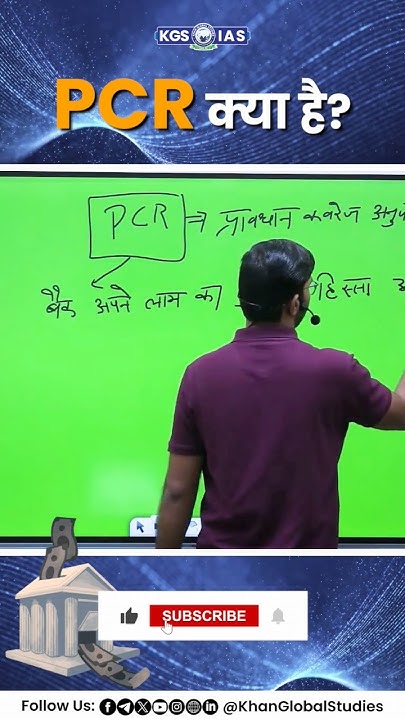 KGS IAS
PCR क्या है?
PCR ⇒ प्रावधान कवरेज
बैंक अपने लाभ का हिस्सा
SUBSCRIBE
Follow Us: @KhanGlobalStudies